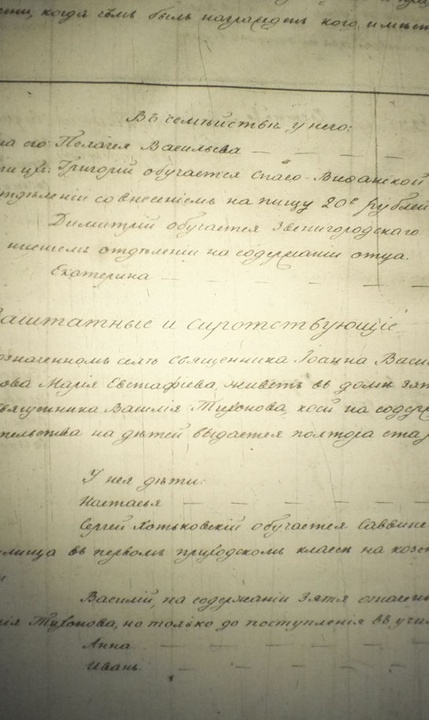 сти, когда чѣмъ былъ награжденъ кого имѣетъ
Въ семѣйствѣ у него:
на его Пелагея Васильева
Григорій обучается Спасо-Виѳанской
отдѣленіи со внесеніемъ на пищу 20ᵉ рублей
Димитрій обучается Звенигородскаго
нисшемъ отдѣленіи на содержаніи отца.
Екатерина
Заштатные и сиротствующіе
означенномъ селѣ священника Іоанна Васи
ова Марія Евстафіева, живетъ въ домѣ зят
священника Василія Тихонова, коей на содер
тельства на дѣтей выдается полтора ста р
У нея дѣти:
Настасья
Сергей Хотьковскій обучается Саввине
лища въ первомъ приходскомъ классѣ на
Василій, на содержаніи зятя означен
ія Тихонова, но только до поступленія въ учи
Анна
Иванъ